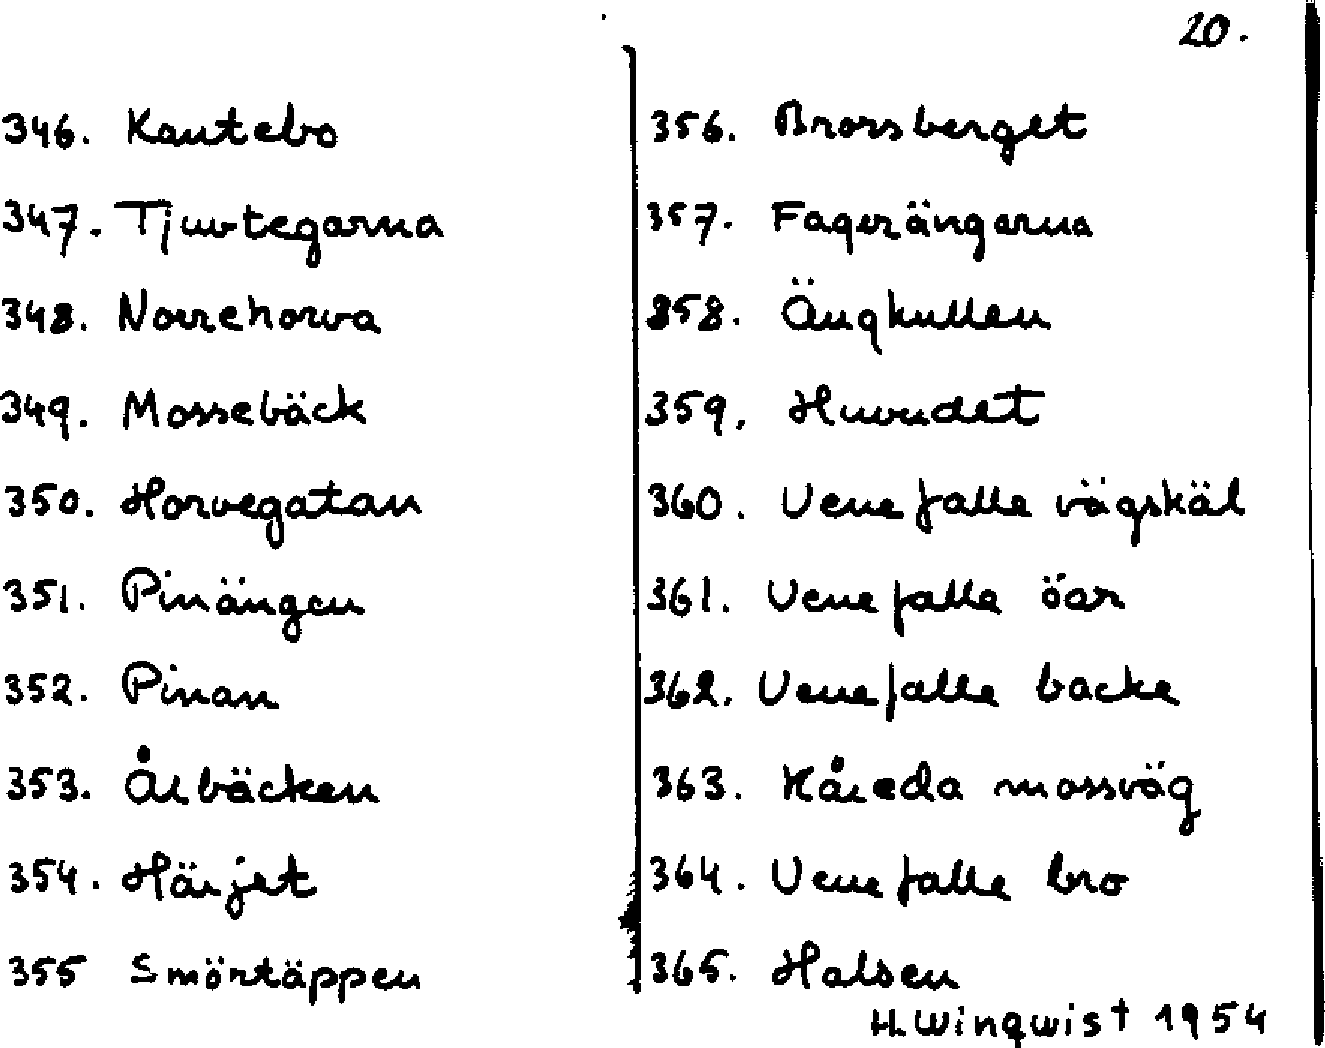 20.
346. Kautebo
347. Tjuvtegarna
348. Norrehorva
349. Mossebäck
350. Horvegatan
351. Pinängen
352. Pinan
353. Ålbäcken
354. Härjet
355 Smörtäppen
356. Brorsberget
357. Fagerängarna
358. Ängkullen
359. Huvudet
360. Venefalla vägskäl
361. Venefalla öar
362. Venefalla backe
363. Kåreda mossväg
364. Venefalle bro
365. Halsen
H. Winqwist 1954